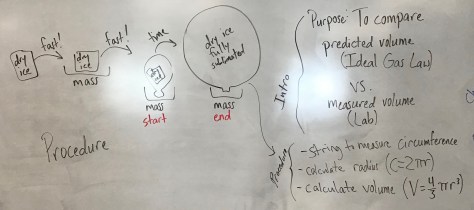 fast!
dry
ice
fast!
dry
ice
mass
time
dry
ice
mass
start
dry ice
fully
sublimated
mass
end
Procedure
Intro
Purpose: To compare
predicted volume
(Ideal Gas Law)
vs.
measured volume
(Lab)
Procedure
- String to measure circumference
- calculate radius (C=2πr)
- calculate volume (V=4/3 πr³)